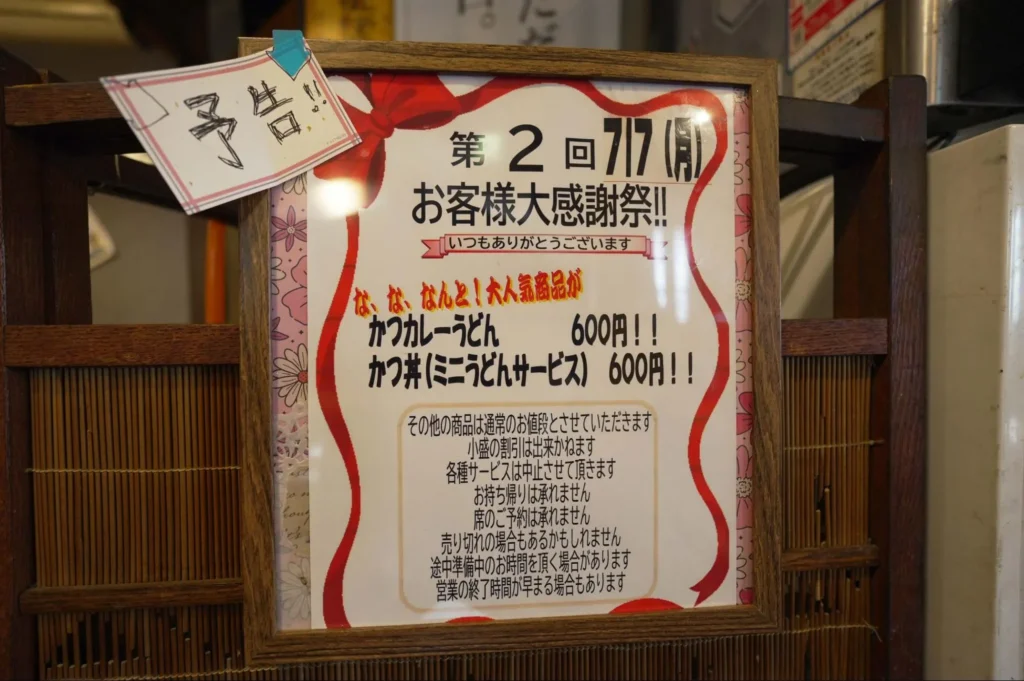 予告!!
第2回 7/7(月)
お客様大感謝祭!!
いつもありがとうございます
な、な、なんと!大人気商品が
かつカレーうどん 600円!!
かつ丼(ミニうどんサービス) 600円!!
その他の商品は通常のお値段とさせていただきます
小盛の割引は出来かねます
各種サービスは中止させて頂きます
お持ち帰りは承れません
席のご予約は承れません
売り切れの場合もあるかもしれません
途中準備中のお時間を頂く場合があります
営業の終了時間が早まる場合もあります